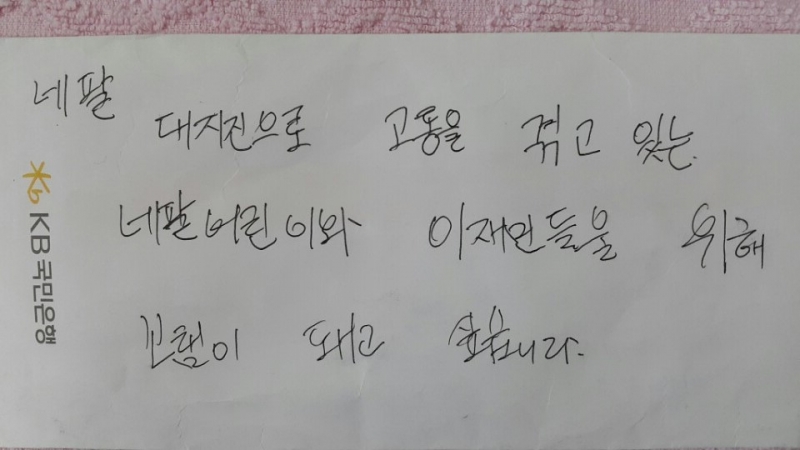 네팔
대지진으로 고통을 겪고 있는
네팔어린이와 이재민들을 위해
보탬이 돼고 싶습니다.
KB 국민은행